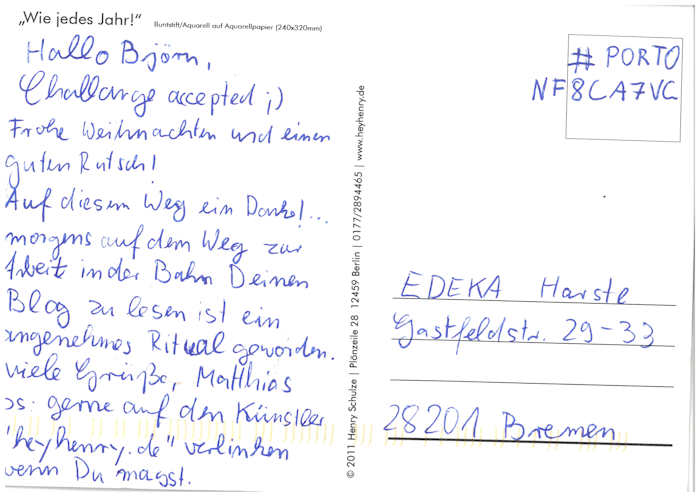 „Wie jedes Jahr!“ Buntstift/Aquarell auf Aquarellpapier (240x320mm)
Hallo Björn,
Challange accepted ;)
Frohe Weihnachten und einen
guten Rutsch!
Auf diesem Weg ein Danke!...
morgens auf dem Weg zur
Arbeit in der Bahn Deinen
Blog zu lesen ist ein
angenehmes Ritual geworden.
viele Grüße, Matthias
ps: gerne auf den Künstler
"heyhenry.de" verlinken
wenn Du magst.
© 2011 Henry Schulze | Plönzeile 28 12459 Berlin | 0177/2894465 | www.heyhenry.de
# PORTO
NF8CA7VC
EDEKA Harste
Gastfeldstr. 29-33
28201 Bremen